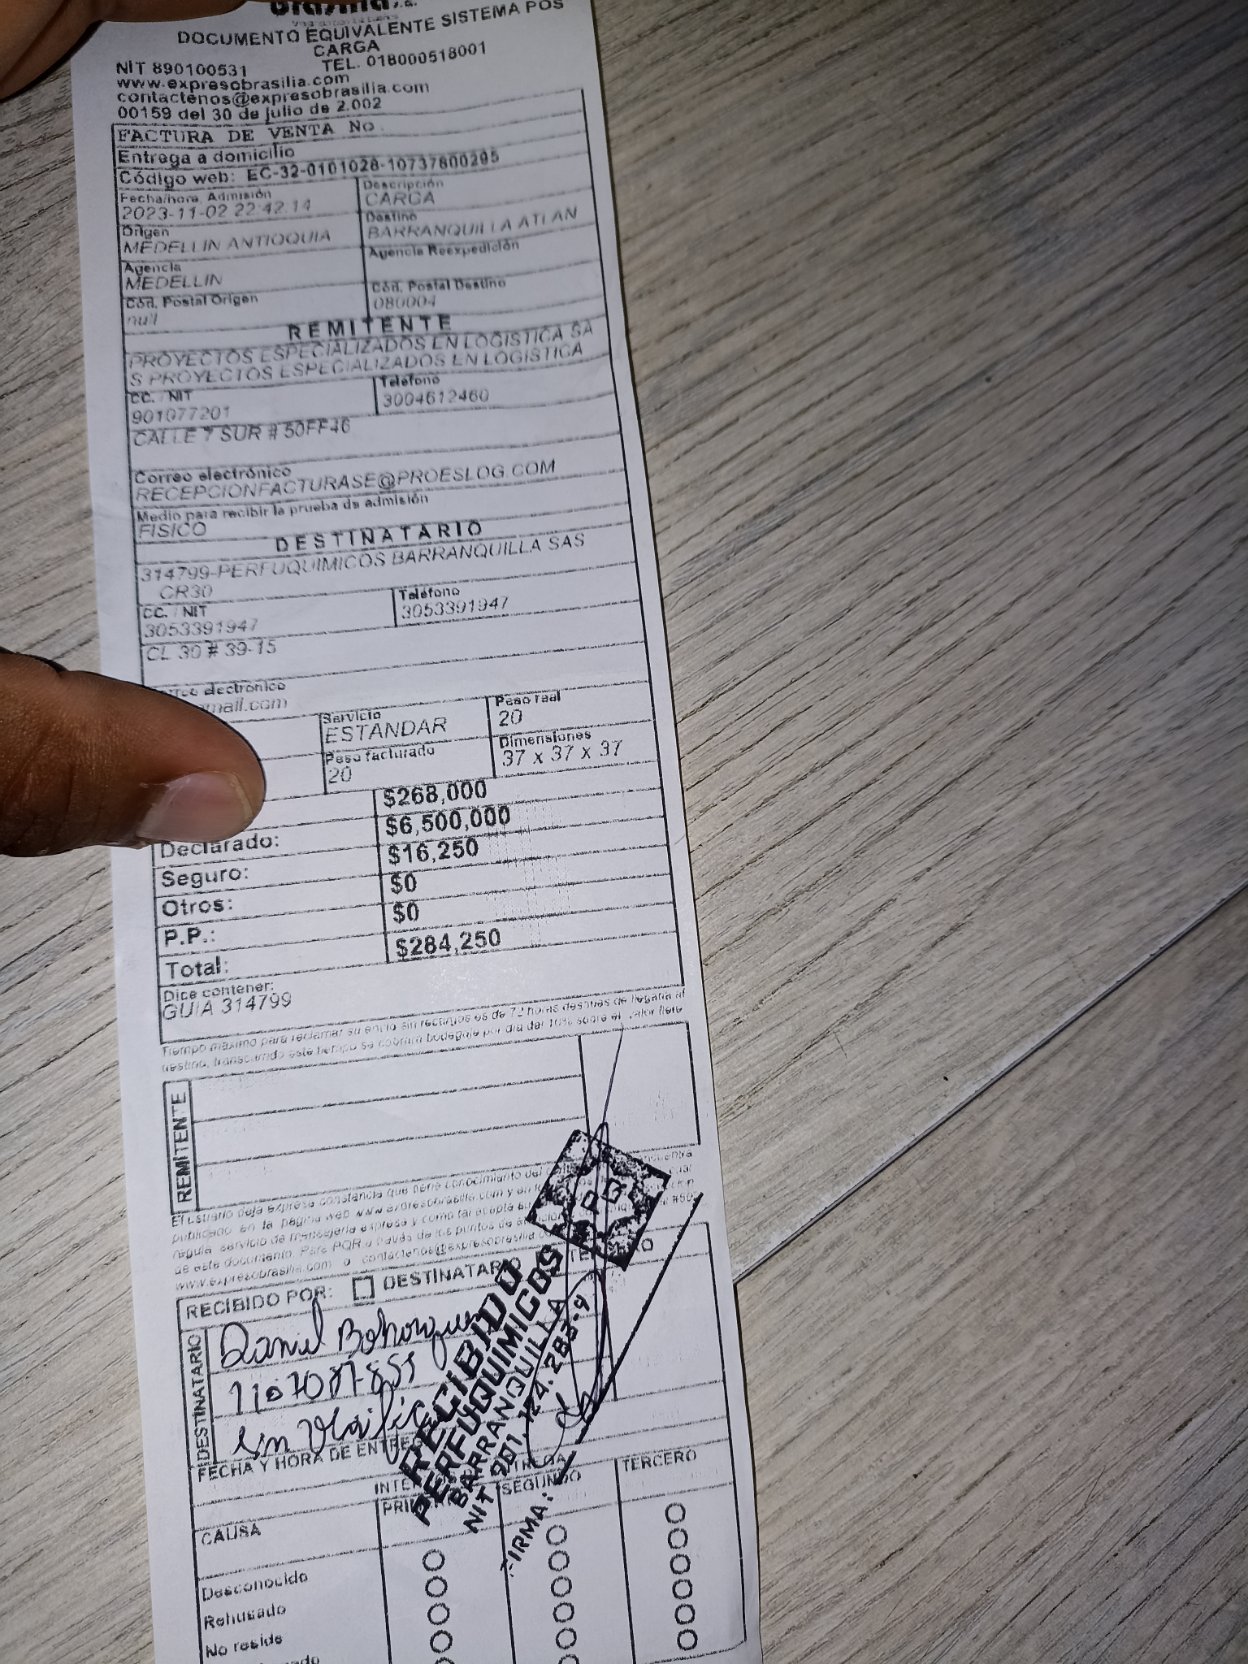 brasilia S.A.
DOCUMENTO EQUIVALENTE SISTEMA POS
CARGA
NIT 890100531 TEL. 018000518001
www.expresobrasilia.com
contactenos@expresobrasilia.com
00159 del 30 de julio de 2.002
FACTURA DE VENTA No
Entrega a domicilio
Código web: EC-32-0101028-10737800295
Fecha/hora. Admisión Descripción
2023-11-02 22:42:14 CARGA
Origen Destino
MEDELLIN ANTIOQUIA BARRANQUILLA ATLAN
Agencia Agencia Reexpedición
MEDELLIN
Cód. Postal Origen Cód. Postal Destino
null 080004
REMITENTE
PROYECTOS ESPECIALIZADOS EN LOGISTICA SA
S PROYECTOS ESPECIALIZADOS EN LOGISTICA
CC. / NIT Teléfono
901077201 3004612460
CALLE 7 SUR # 50FF46
Correo electrónico
RECEPCIONFACTURASE@PROESLOG.COM
Medio para recibir la prueba de admisión
FISICO
DESTINATARIO
314799-PERFUQUIMICOS BARRANQUILLA SAS
CR30
CC. / NIT Teléfono
3053391947 3053391947
CL 30 # 39-15
electrónico
mail.com
Servicio Peso real
ESTANDAR 20
Peso facturado Dimensiones
20 37 x 37 x 37
$268,000
Declarado: $6,500,000
Seguro: $16,250
Otros: $0
P.P.: $0
Total: $284,250
Dice contener:
GUIA 314799
Tiempo máximo para reclamar su envío sin recargos es de 72 horas después de llegada al
destino, transcurrido este tiempo se cobrará bodegaje por día del 10% sobre el valor flete
REMITENTE
El usuario deja expresa constancia que tiene conocimiento del
publicado en la página web www.expresobrasilia.com y en
regula servicio de mensajería expresa y como tal acepta
de este documento. Para PQR a través de los puntos de
www.expresobrasilia.com o contactenos@expresobrasilia
RECIBIDO POR: DESTINATARIO
DESTINATARIO
Daniel Bohorquez
FECHA Y HORA DE ENTREGA
RECIBIDO
PERFUQUIMICOS
BARRANQUILLA
NIT 901.124.283-9
FIRMA:
SEGUNDO TERCERO
CAUSA
Desconocido
Rehusado
No reside